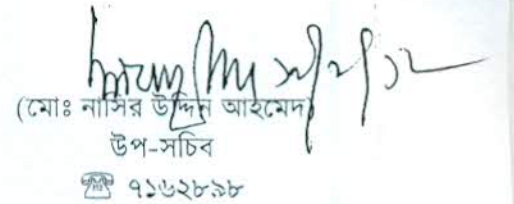 (মোঃ নাসির উদ্দিন আহমেদ)
উপ-সচিব
☎ ৭১৬২৮৯৮